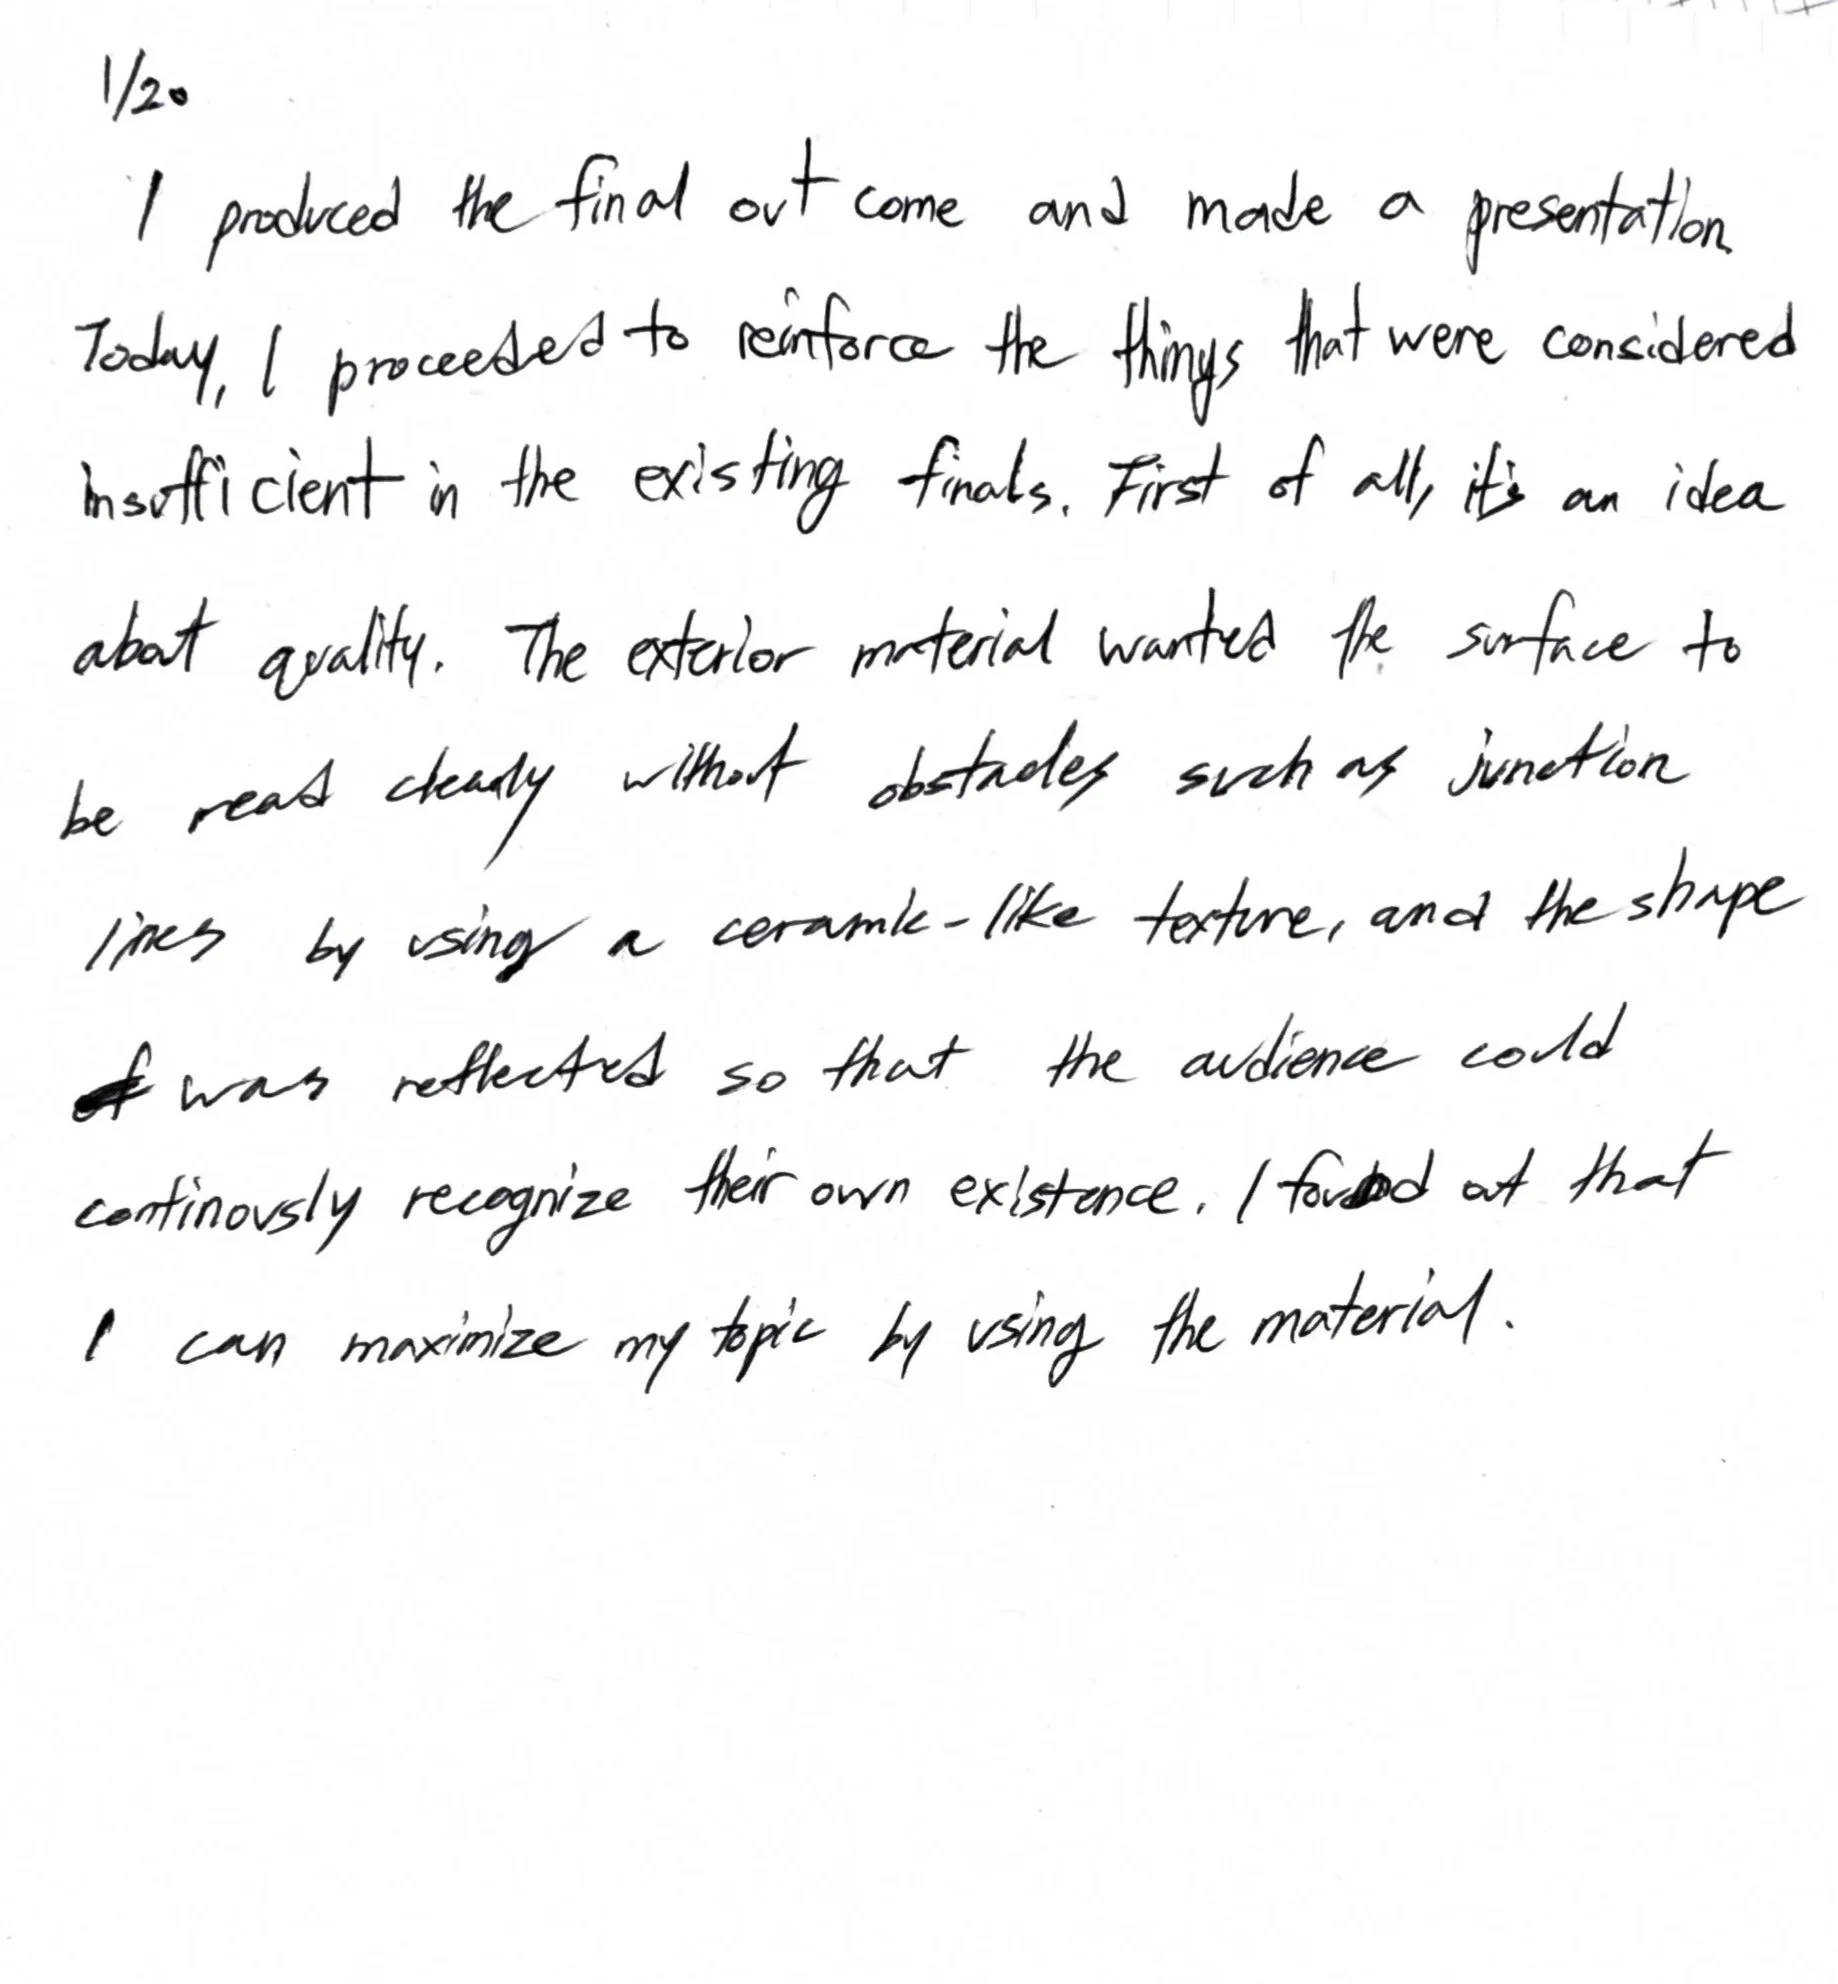 1/20
I produced the final out come and made a presentation
Today, I proceeded to reinforce the things that were considered
insufficient in the existing finals. First of all, it's an idea
about quality. The exterior material wanted the surface to
be read clearly without obstacles such as junction
lines by using a ceramic-like texture, and the shape
was reflected so that the audience could
continously recognize their own existence. I found out that
I can maximize my topic by using the material.